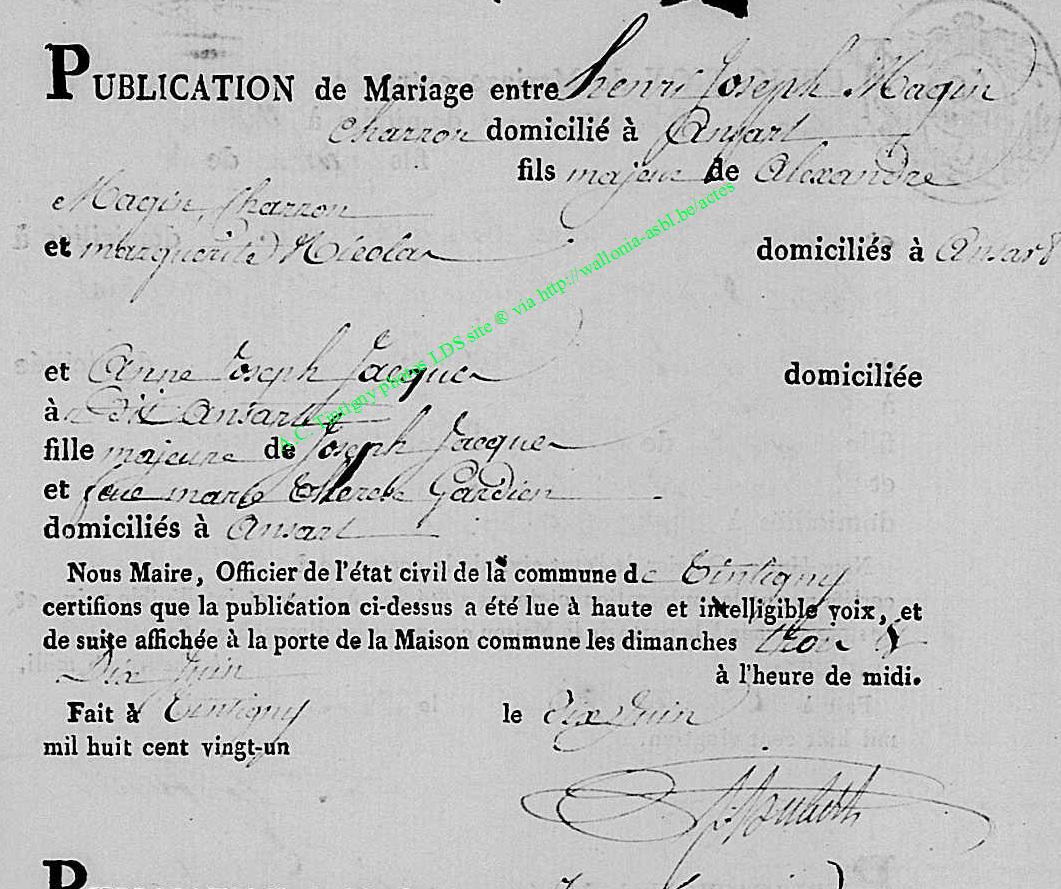 PUBLICATION de Mariage entre henri Joseph Magin
Charron domicilié à Ansart
fils majeur de Alexandre
Magin, Charron
et marguerite Nicolas domiciliés à Ansart
et Anne Joseph Jacques domiciliée
à Dit Ansart
fille majeure de Joseph Jacques
et feue marie therese Gardien
domiciliés à Ansart
Nous Maire, Officier de l'état civil de la commune de Tintigny
certifions que la publication ci-dessus a été lue à haute et intelligible voix, et
de suite affichée à la porte de la Maison commune les dimanches trois &
Dix Juin à l'heure de midi.
Fait à Tintigny le dix Juin
mil huit cent vingt-un
A.C. Tintigny photos LDS site ® via http://wallonia-asbl.be/actes